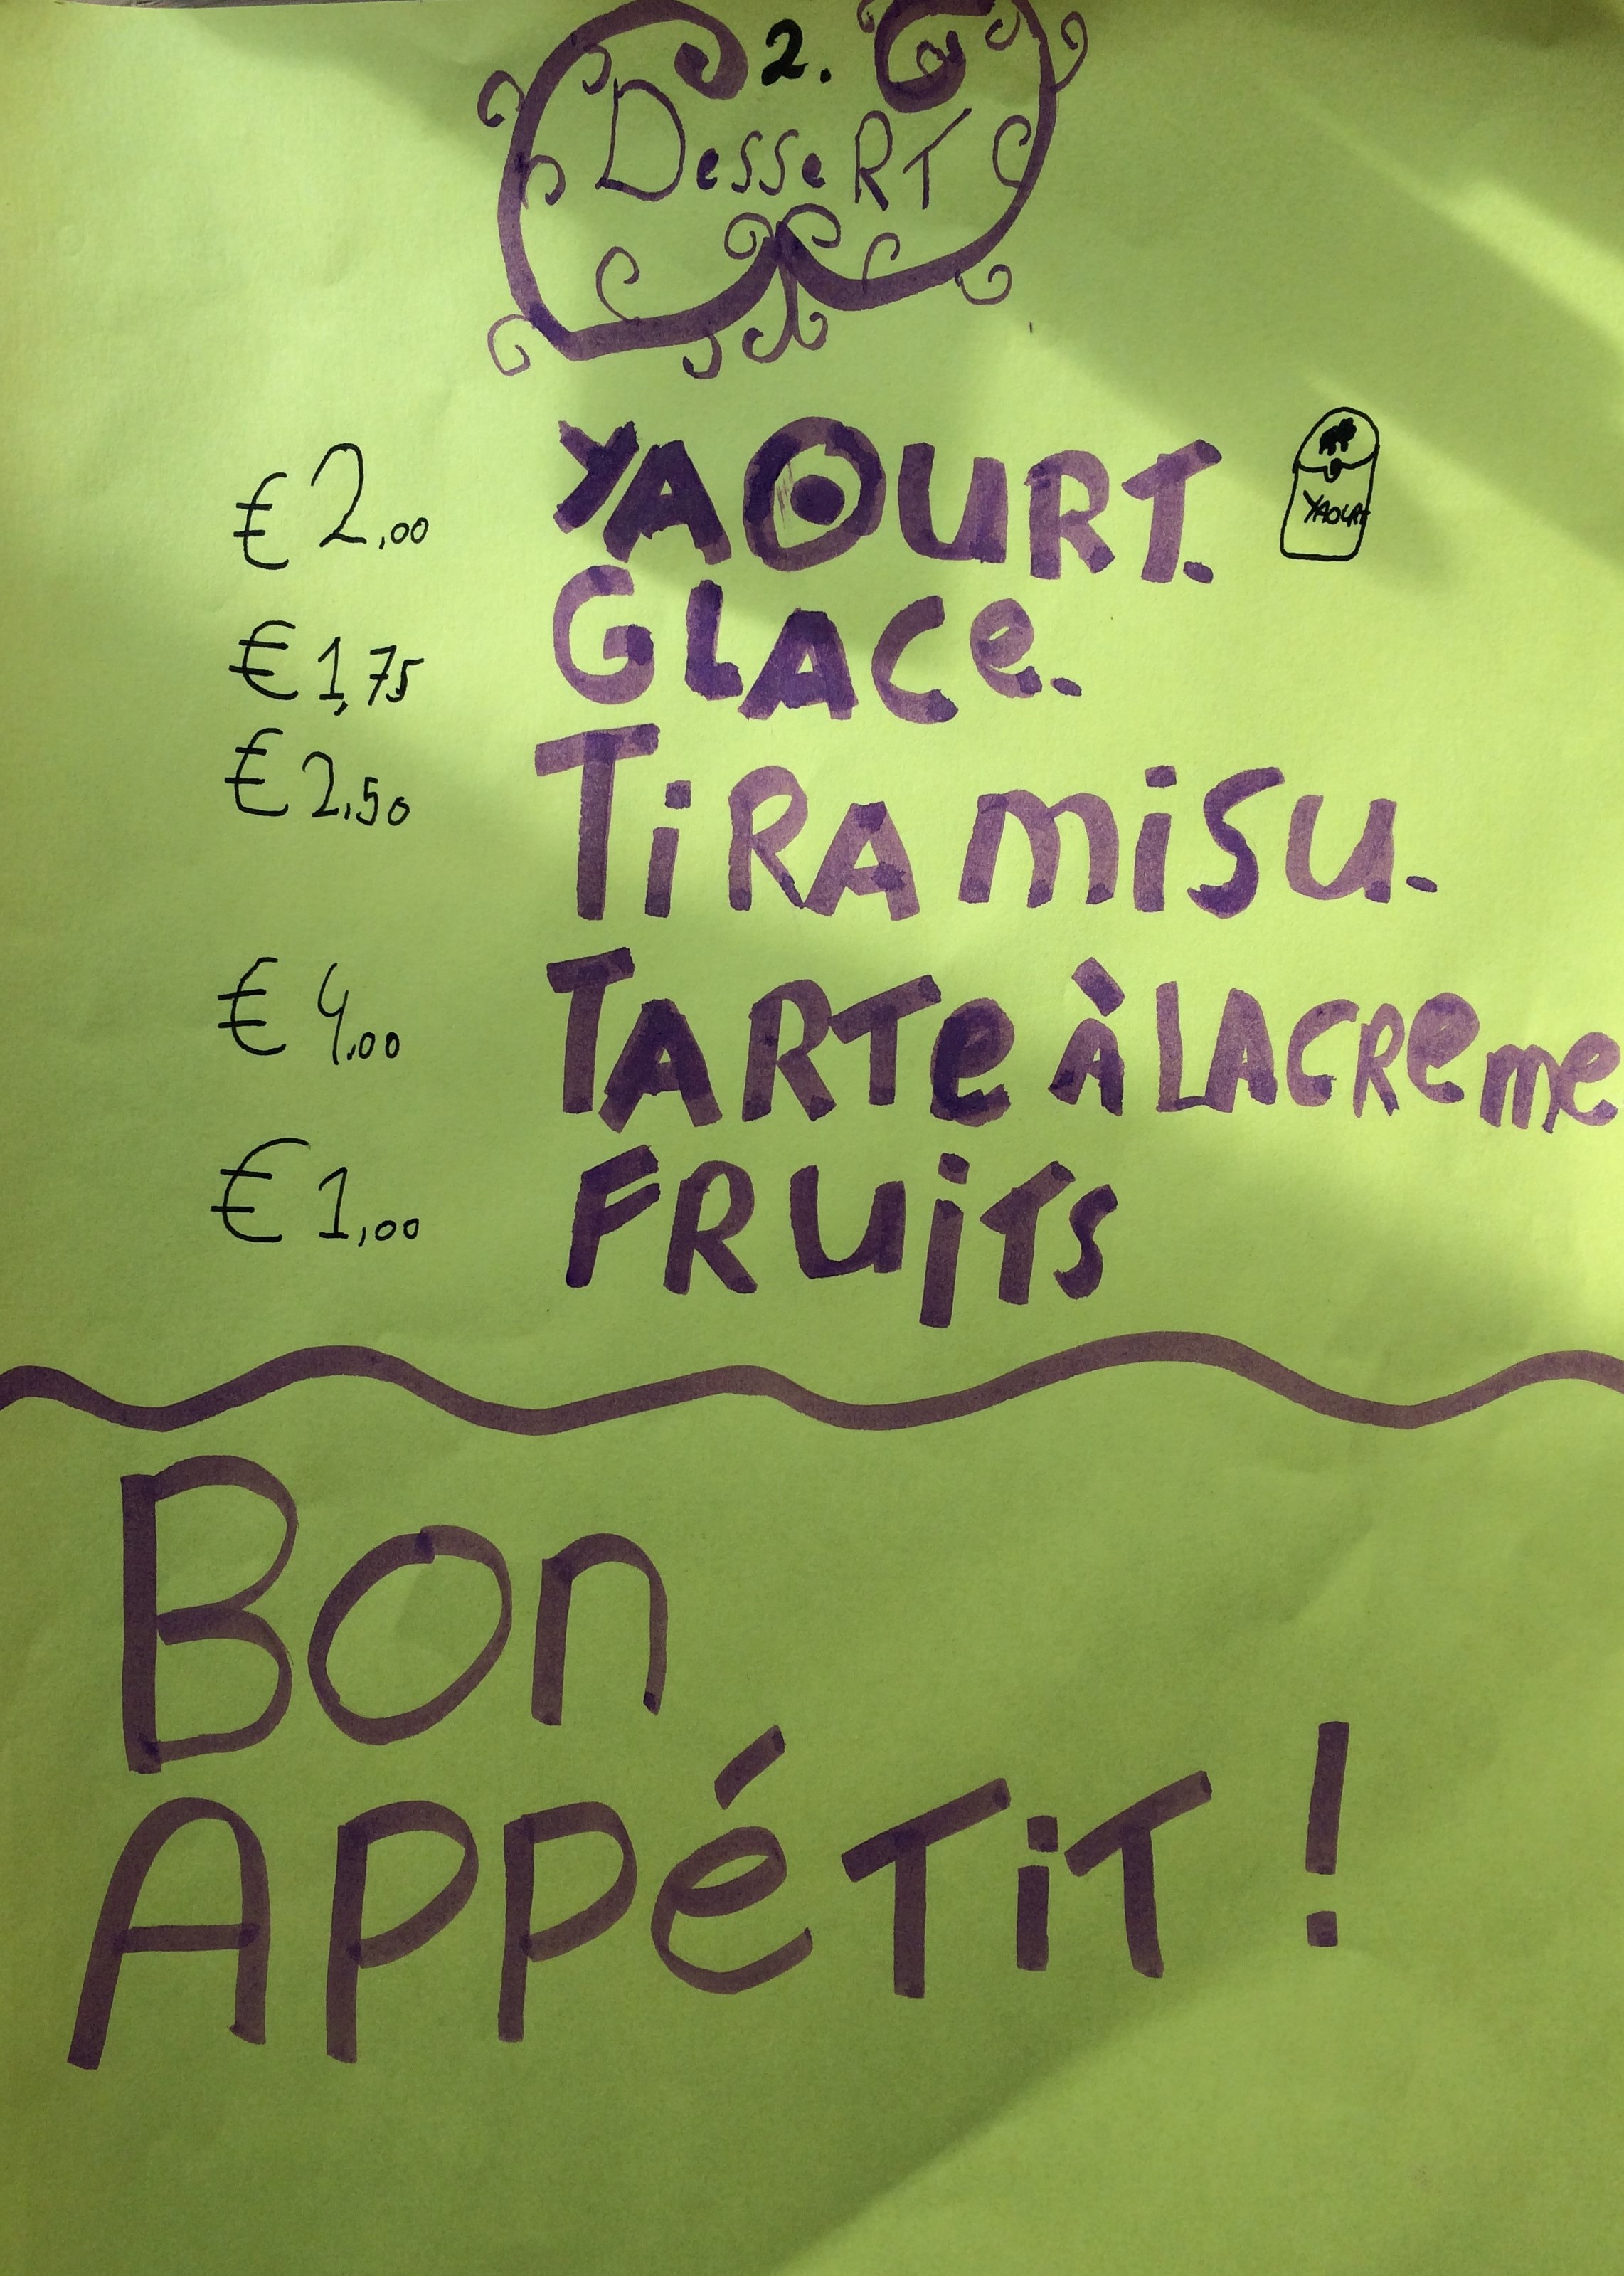 2.
DesseRT
€ 2,00 YAOURT. YAOURT
€ 1,75 GLACe.
€ 2,50 TiRAmiSu.
€ 4,00 TARTe à LA CReme
€ 1,00 FRUiTS
Bon
APPéTiT !